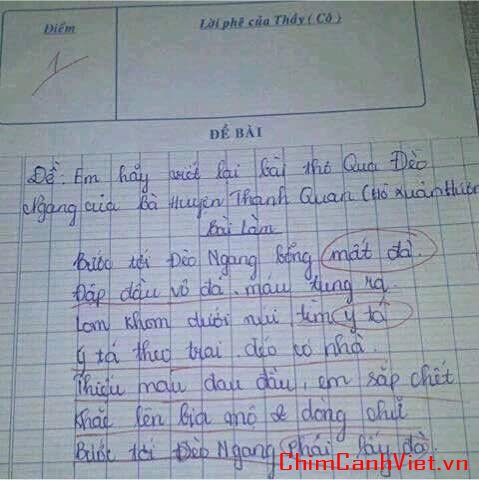 Điểm
Lời phê của Thầy ( Cô )
1
ĐỀ BÀI
Đề: Em hãy viết lại bài thơ Qua Đèo
Ngang của Bà Huyện Thanh Quan (Hồ Xuân Hươn
Bài làm
Bước tới Đèo Ngang bỗng mất đà.
Đập đầu vô đá, máu tung ra
Lom khom dưới núi tìm y tá
Y tá theo trai, đéo có nhà.
Thiếu máu đau đầu, em sắp chết
Khắc lên bia mộ 2 dòng chữ
Bước tới Đèo Ngang phải lấy đà.
ChimCanhViet.vn